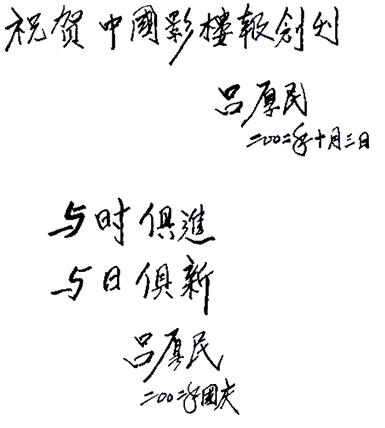 祝贺中國影樓報創刋
吕厚民
二〇〇二年十月三日
与时俱進
与日俱新
吕厚民
二〇〇二年國庆